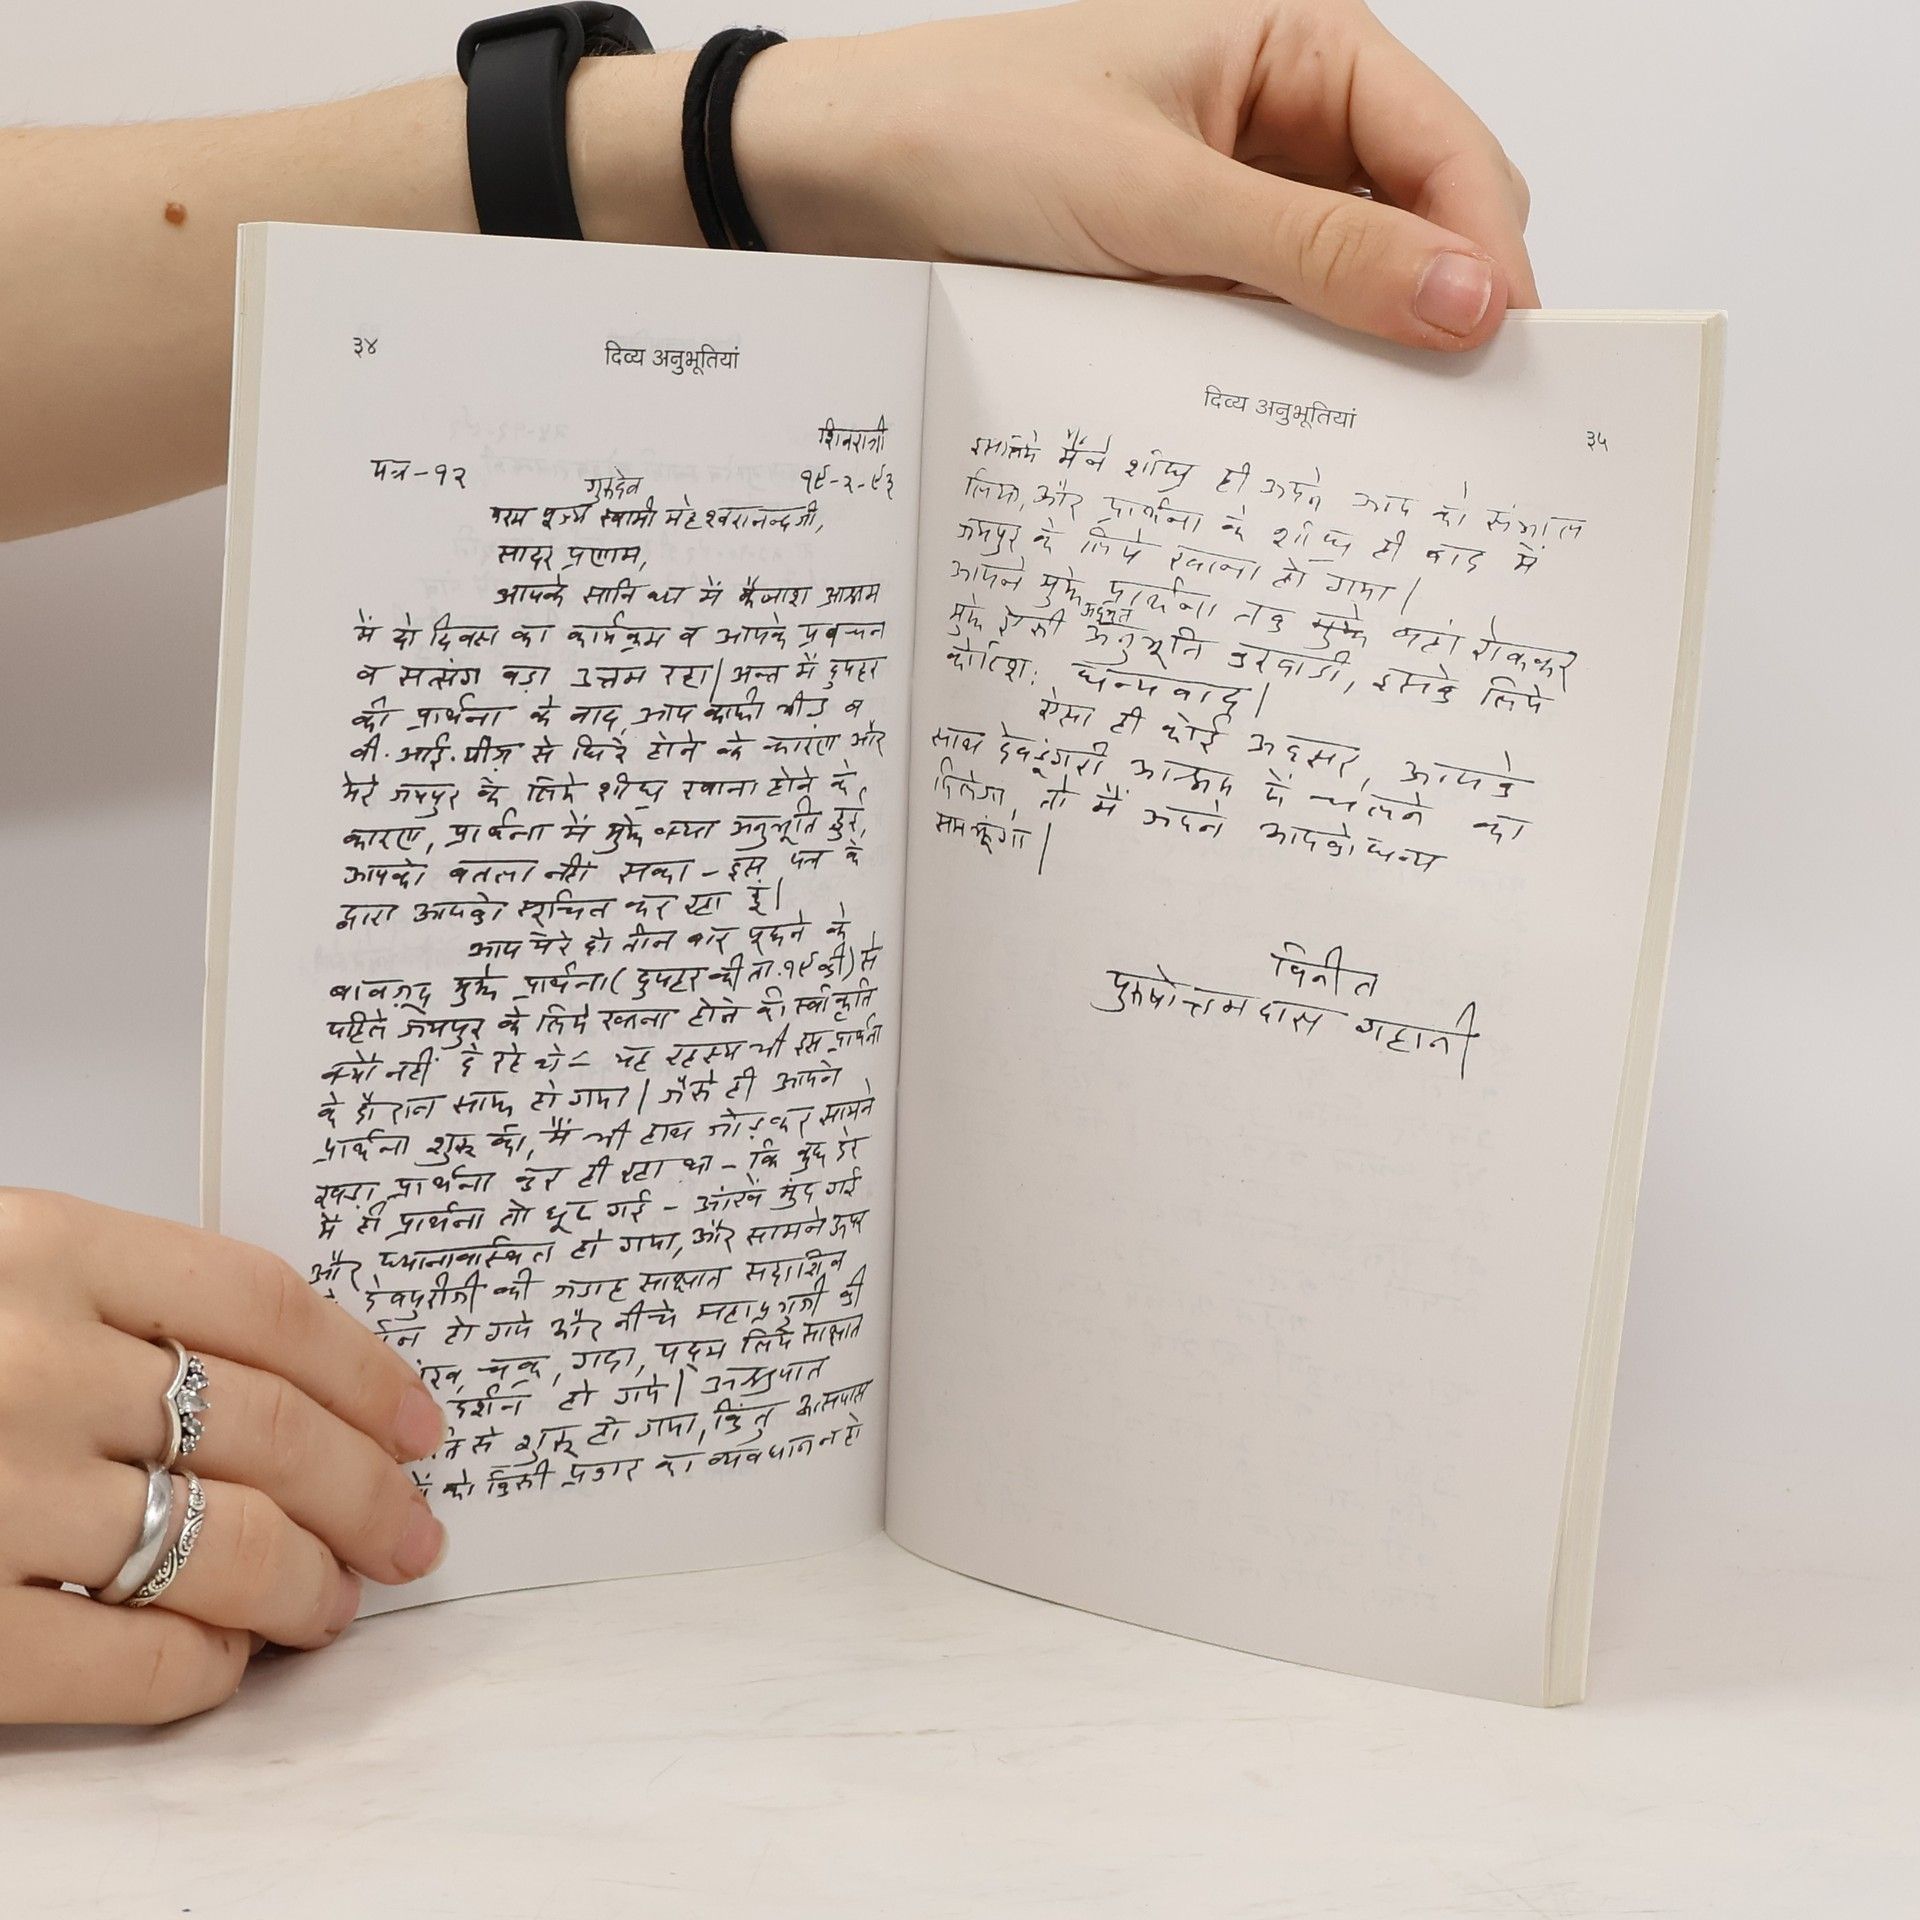 ३४
दिव्य अनुभूतियां
शिवरात्री
पत्र-१२
१९-२-९३
गुरुदेव
परम पूज्य स्वामी महेश्वरानन्दजी,
सादर प्रणाम,
आपके सानिध्य में कैलाश आश्रम
में दो दिवस का कार्यक्रम व आपके प्रवचन
व सत्संग बड़ा उत्तम रहा। अन्त में दुपहर
की प्रार्थना के बाद, आप काफी भीड़ व
वी.आई.पीज़ से घिरे होने के कारण और
मेरे जयपुर के लिये शीघ्र रवाना होने के
कारण, प्रार्थना में मुझे क्या अनुभूति हुई,
आपको बतला नहीं सका - इस पत्र के
द्वारा आपको सूचित कर रहा हूं।
आप मेरे दो तीन बार पूछने के
बावजूद मुझे प्रार्थना (दुपहर की ता. १९ की) से
पहिले जयपुर के लिये रवाना होने की स्वीकृति
क्यों नहीं दे रहे थे - यह रहस्य भी इस प्रार्थना
के दौरान साफ हो गया। जैसे ही आपने
प्रार्थना शुरू की, मैं भी हाथ जोड़कर सामने
खड़ा प्रार्थना कर ही रहा था - कि कुछ देर
में ही प्रार्थना तो छूट गई - आंखें मुंद गई
और ध्यानावस्थित हो गया, और सामने ऊपर
देवपुरीजी की जगह साक्षात सदाशिव
हो गये और नीचे महाप्रभुजी की
चक्र, गदा, पद्म लिये साक्षात
दर्शन हो गये। अश्रुपात
से शुरू हो गया, किंतु आसपास
को किसी प्रकार का व्यवधान न हो
दिव्य अनुभूतियां
३५
इसलिये मैंने शीघ्र ही अपने आप को संभाल
लिया, और प्रार्थना के शीघ्र ही बाद में
जयपुर के लिये रवाना हो गया।
आपने मुझे प्रार्थना तक मुझे वहां रोककर
मुझे ऐसी अद्भुत अनुभूति करवादी, इसके लिये
कोटिशः धन्यवाद।
ऐसा ही कोई अवसर, आपके
साथ देवडूंगरी आश्रम में चलने का
मिलेगा, तो मैं अपने आपको धन्य
समझूंगा।
विनीत
पुरुषोत्तमदास गहानी